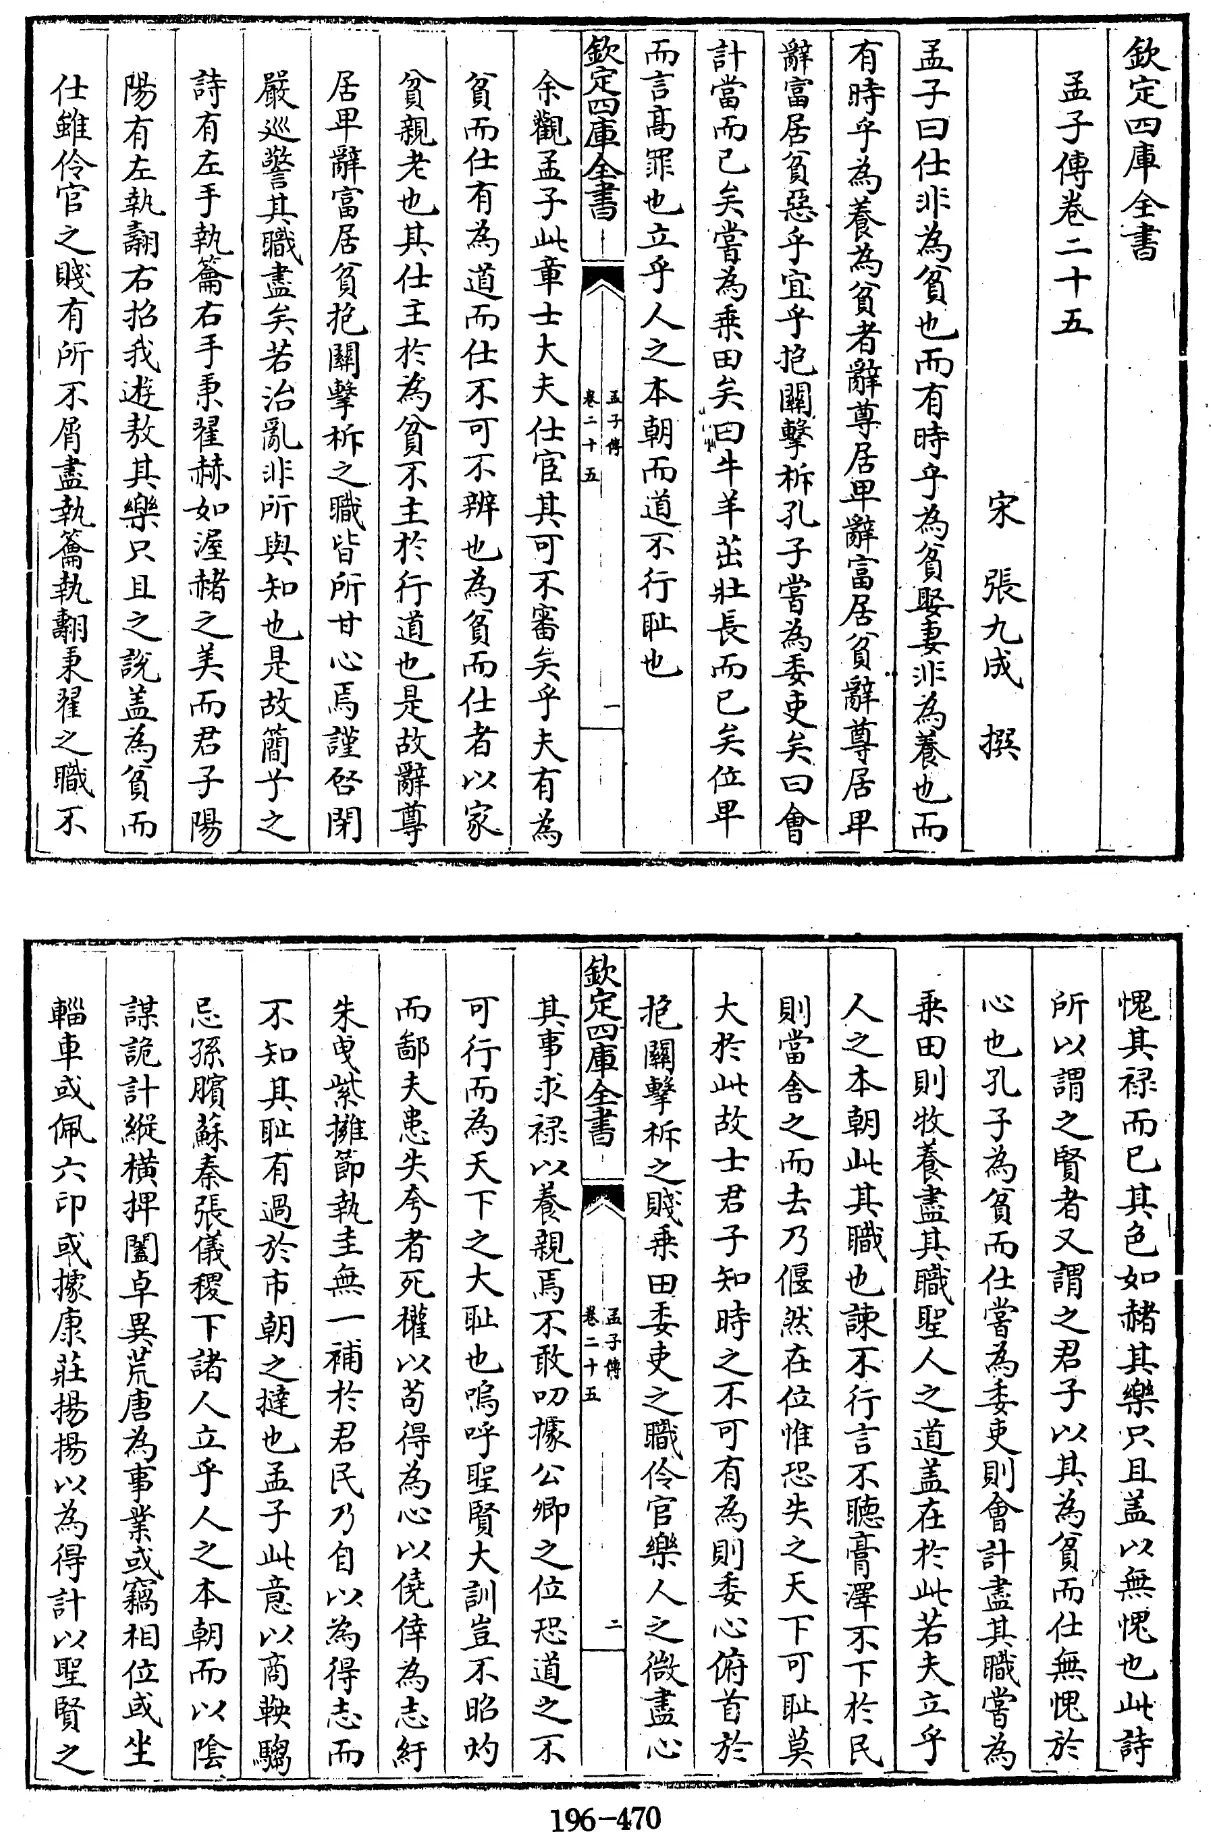 欽定四庫全書
孟子傳卷二十五
宋 張九成 撰
孟子曰仕非為貧也而有時乎為貧娶妻非為養也而
有時乎為養為貧者辭尊居卑辭富居貧辭尊居卑
辭富居貧惡乎宜乎抱關擊柝孔子嘗為委吏矣曰會
計當而已矣嘗為乘田矣曰牛羊茁壯長而已矣位卑
而言髙罪也立乎人之本朝而道不行耻也
欽定四庫全書
孟子傳
卷二十五
一
余觀孟子此章士大夫仕宦其可不審矣乎夫有為
貧而仕有為道而仕不可不辨也為貧而仕者以家
貧親老也其仕主於為貧不主於行道也是故辭尊
居卑辭富居貧抱關擊柝之職皆所甘心焉謹啓閉
嚴巡警其職盡矣若治亂非所與知也是故簡兮之
詩有左手執籥右手秉翟赫如渥赭之美而君子陽
陽有左執翿右招我遊敖其樂只且之說盖為貧而
仕雖伶官之賤有所不屑盡執籥執翿秉翟之職不
愧其祿而已其色如赭其樂只且盖以無愧也此詩
所以謂之賢者又謂之君子以其為貧而仕無愧於
心也孔子為貧而仕嘗為委吏則會計盡其職嘗為
乘田則牧養盡其職聖人之道盖在於此若夫立乎
人之本朝此其職也諫不行言不聽膏澤不下於民
則當舍之而去乃偃然在位惟恐失之天下可耻莫
大於此故士君子知時之不可有為則委心俯首於
抱關擊柝之賤乘田委吏之職伶官樂人之微盡心
欽定四庫全書
孟子傳
卷二十五
二
其事求祿以養親焉不敢叨據公卿之位恐道之不
可行而為天下之大耻也嗚呼聖賢大訓豈不昭灼
而鄙夫患失夸者死權以苟得為心以僥倖為志紆
朱曳紫擁節執圭無一補於君民乃自以為得志而
不知其耻有過於市朝之撻也孟子此意以商鞅騶
忌孫臏蘇秦張儀稷下諸人立乎人之本朝而以陰
謀詭計縱横捭闔卓異荒唐為事業或竊相位或坐
輜車或佩六印或據康莊揚揚以為得計以聖賢之
196-470